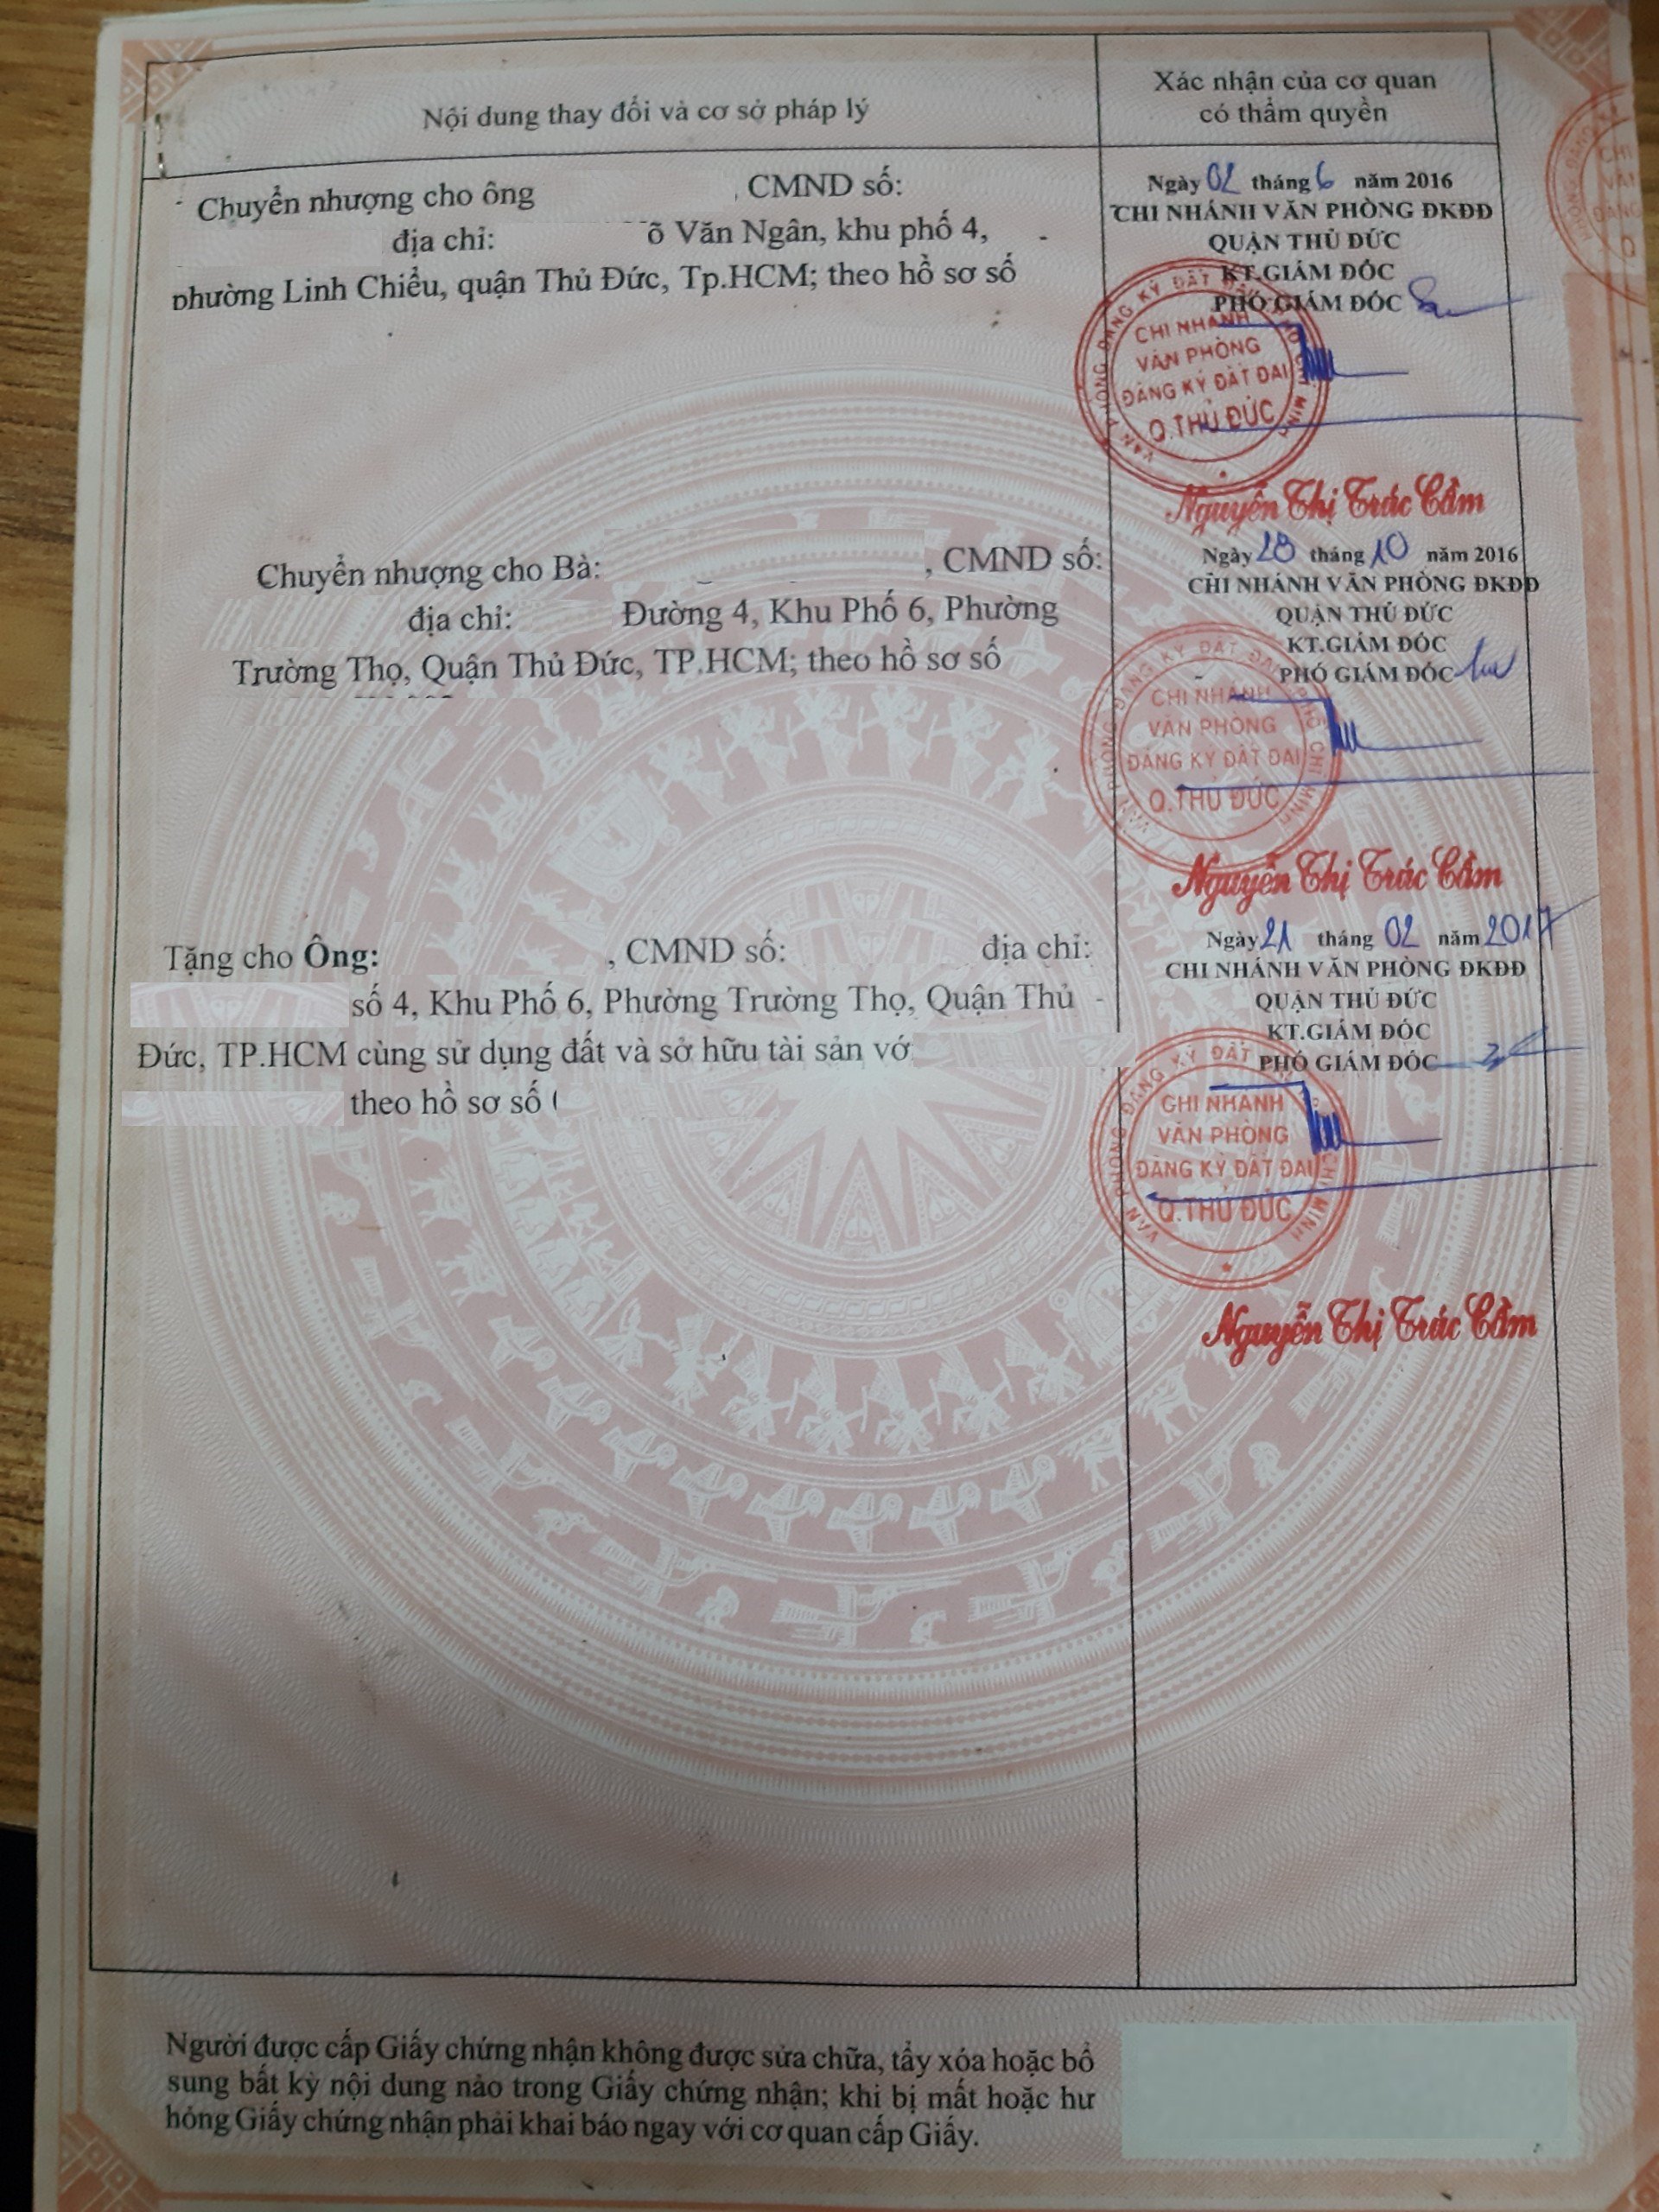 Nội dung thay đổi và cơ sở pháp lý
Xác nhận của cơ quan
có thẩm quyền
Chuyển nhượng cho ông , CMND số:
địa chỉ: õ Văn Ngân, khu phố 4,
phường Linh Chiểu, quận Thủ Đức, Tp.HCM; theo hồ sơ số
Ngày 02 tháng 6 năm 2016
CHI NHÁNH VĂN PHÒNG ĐKĐĐ
QUẬN THỦ ĐỨC
KT.GIÁM ĐỐC
PHÓ GIÁM ĐỐC
CHI NHÁNH
VĂN PHÒNG
ĐĂNG KÝ ĐẤT ĐAI
Q.THỦ ĐỨC
Nguyễn Thị Trúc Cầm
Chuyển nhượng cho Bà: , CMND số:
địa chỉ: Đường 4, Khu Phố 6, Phường
Trường Thọ, Quận Thủ Đức, TP.HCM; theo hồ sơ số
Ngày 28 tháng 10 năm 2016
CHI NHÁNH VĂN PHÒNG ĐKĐĐ
QUẬN THỦ ĐỨC
KT.GIÁM ĐỐC
PHÓ GIÁM ĐỐC
CHI NHÁNH
VĂN PHÒNG
ĐĂNG KÝ ĐẤT ĐAI
Q.THỦ ĐỨC
Nguyễn Thị Trúc Cầm
Tặng cho Ông: , CMND số: địa chỉ:
số 4, Khu Phố 6, Phường Trường Thọ, Quận Thủ
Đức, TP.HCM cùng sử dụng đất và sở hữu tài sản vớ
theo hồ sơ số
Ngày 21 tháng 02 năm 2017
CHI NHÁNH VĂN PHÒNG ĐKĐĐ
QUẬN THỦ ĐỨC
KT.GIÁM ĐỐC
PHÓ GIÁM ĐỐC
CHI NHÁNH
VĂN PHÒNG
ĐĂNG KÝ ĐẤT ĐAI
Q.THỦ ĐỨC
Nguyễn Thị Trúc Cầm
Người được cấp Giấy chứng nhận không được sửa chữa, tẩy xóa hoặc bổ
sung bất kỳ nội dung nào trong Giấy chứng nhận; khi bị mất hoặc hư
hỏng Giấy chứng nhận phải khai báo ngay với cơ quan cấp Giấy.